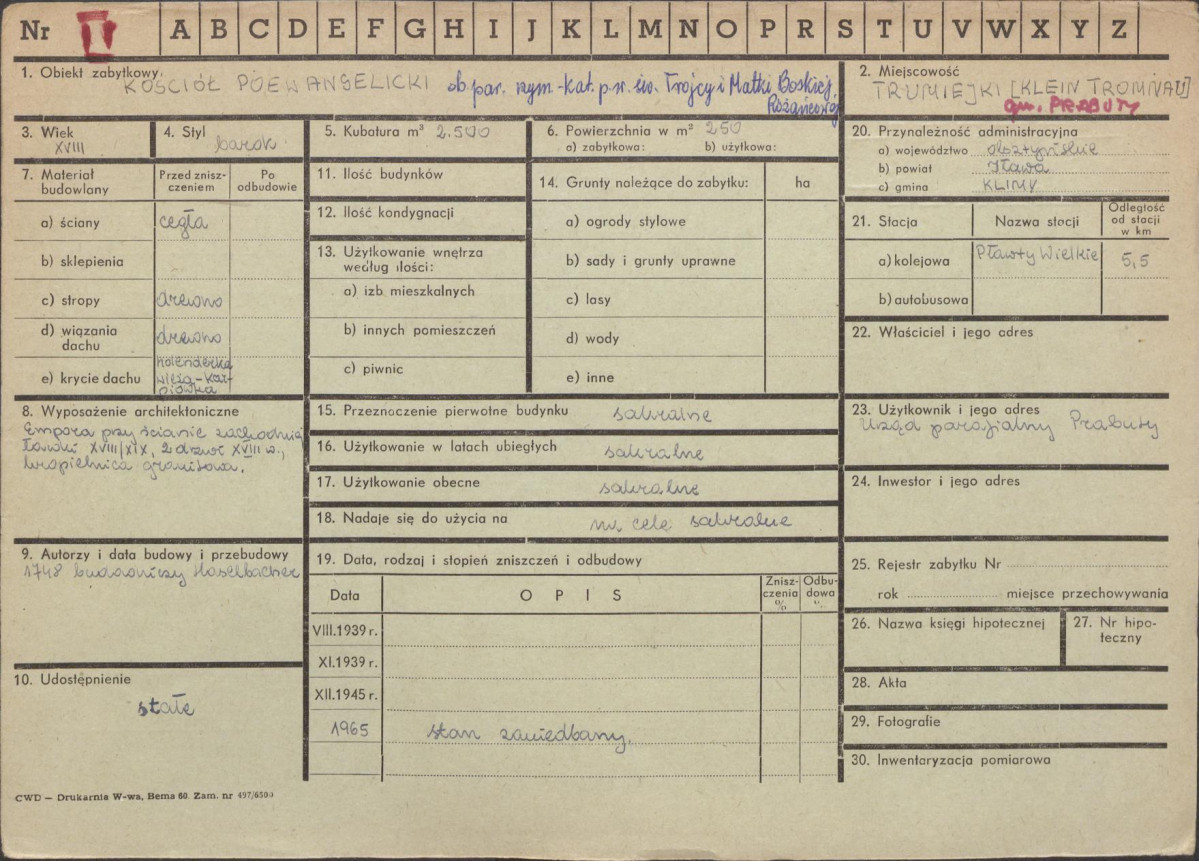 Nr II A B C D E F G H I J K L M N O P R S T U V W X Y Z
1. Obiekt zabytkowy KOŚCIÓŁ POEWANGELICKI ob. par. rzym.-kat. p.w. św. Trójcy i Matki Boskiej
Różańcowej
2. Miejscowość
TRUMIEJKI [KLEIN TROMNAU]
gm. PRABUTY
3. Wiek
XVIII
4. Styl
barok
5. Kubatura m³ 2.500
6. Powierzchnia w m² 250
a) zabytkowa: b) użytkowa:
20. Przynależność administracyjna
a) województwo olsztyńskie
b) powiat Iława
c) gmina KLIMY
7. Materiał budowlany
Przed znisz-
czeniem
Po
odbudowie
a) ściany cegła
b) sklepienia
c) stropy drewno
d) wiązania
dachu drewno
e) krycie dachu holenderka
wieża-kar-
piówka
11. Ilość budynków
12. Ilość kondygnacji
13. Użytkowanie wnętrza
według ilości:
a) izb mieszkalnych
b) innych pomieszczeń
c) piwnic
14. Grunty należące do zabytku: ha
a) ogrody stylowe
b) sady i grunty uprawne
c) lasy
d) wody
e) inne
21. Stacja Nazwa stacji
Odległość
od stacji
w km
a) kolejowa Pławty Wielkie 5,5
b) autobusowa
22. Właściciel i jego adres
8. Wyposażenie architektoniczne
Empora przy ścianie zachodniej
ławki XVIII/XIX, 2 drzwi XVIII w.,
kropielnica granitowa.
15. Przeznaczenie pierwotne budynku sakralne
16. Użytkowanie w latach ubiegłych sakralne
17. Użytkowanie obecne sakralne
18. Nadaje się do użycia na na cele sakralne
23. Użytkownik i jego adres
Urząd parafialny Prabuty
24. Inwestor i jego adres
9. Autorzy i data budowy i przebudowy
1748 budowniczy Haselbacher
19. Data, rodzaj i stopień zniszczeń i odbudowy
Data OPIS
Znisz-
czenia
%
Odbu-
dowa
%
VIII.1939 r.
XI.1939 r.
XII.1945 r.
1965 stan zaniedbany.
25. Rejestr zabytku Nr
rok miejsce przechowywania
26. Nazwa księgi hipotecznej
27. Nr hipo-
teczny
10. Udostępnienie
stałe
28. Akta
29. Fotografie
30. Inwentaryzacja pomiarowa
CWD — Drukarnia W-wa, Bema 60. Zam. nr 497/6500